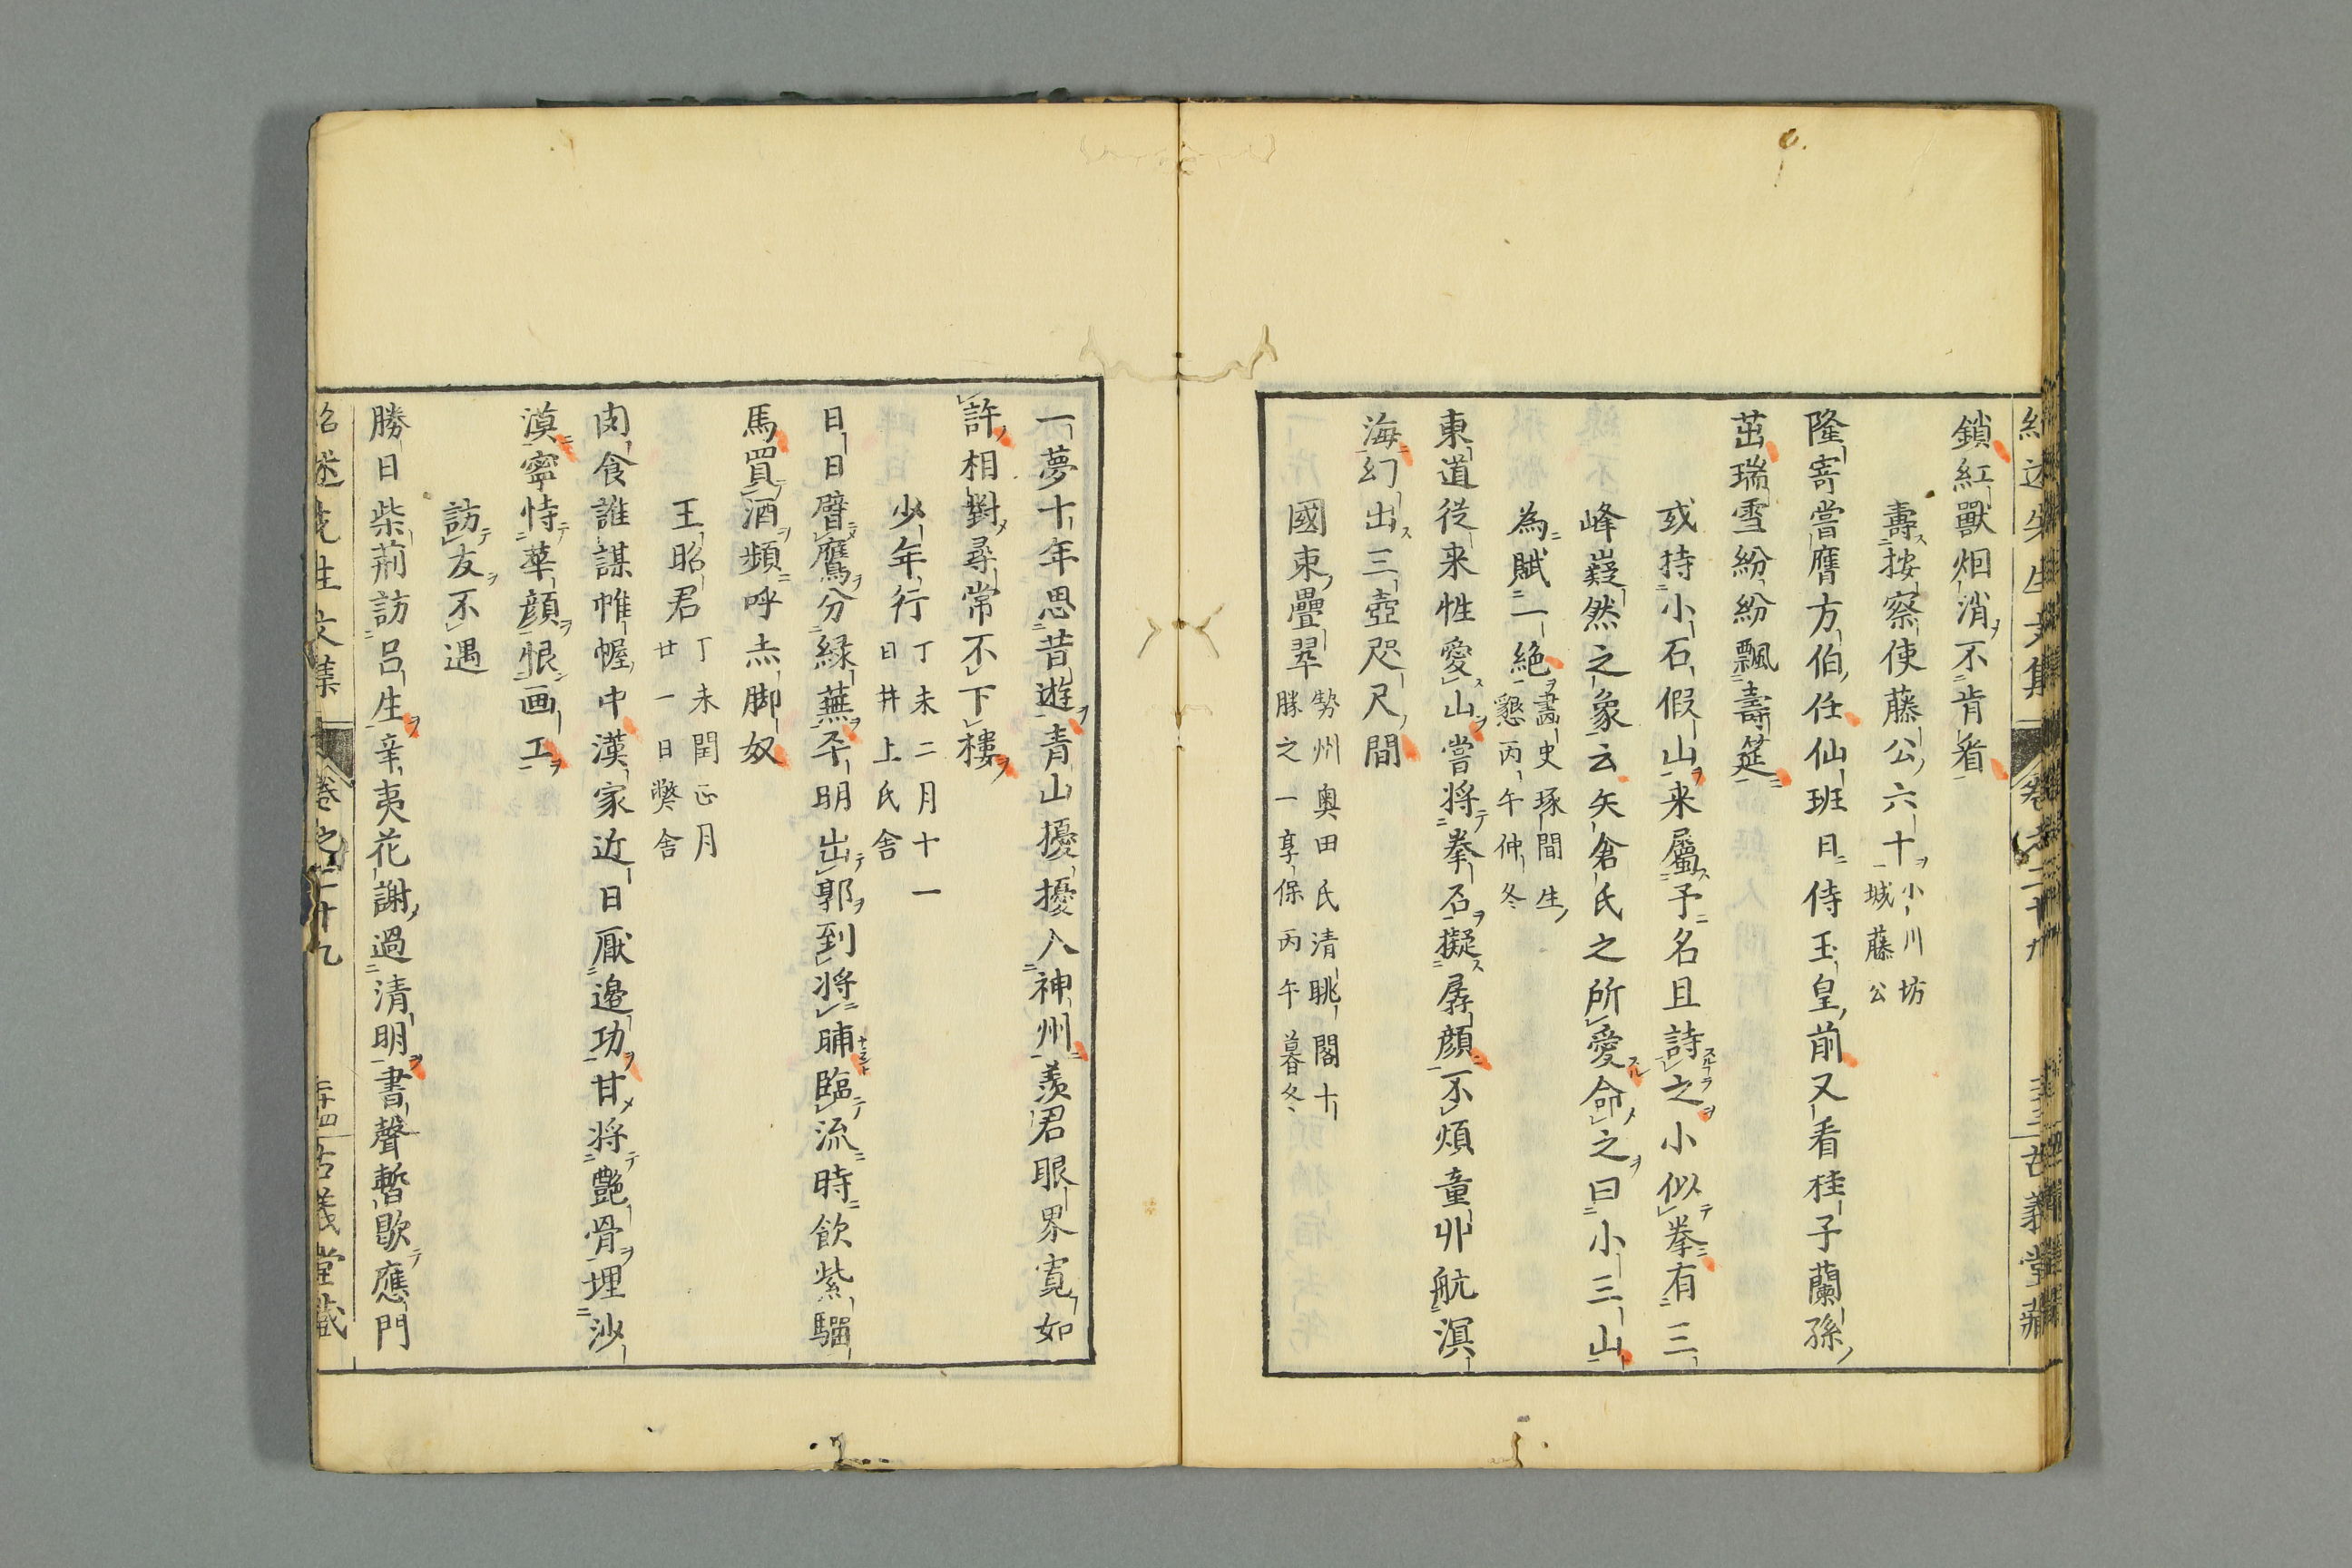 鎖紅獸烟消不肯看
壽按察使藤公六十
小川坊
城藤公
隆寄嘗膺方伯任仙班日侍玉皇前又看桂子蘭孫
茁瑞雪紛紛飄壽筵
或持小石假山来屬予名且詩之小似拳有三
峰嶷然之象云矢倉氏之所愛命之曰小三山
為賦一絶
書画史琢間生
懇丙午仲冬
東道従来性愛山嘗将拳石擬孱顔不煩童丱航溟
海幻出三壺咫尺間
國東疊翠
勢州奥田氏清眺閣十
勝之一享保丙午暮冬
一夢十年思昔遊青山擾擾入神州羨君眼界寛如
許相對尋常不下樓
少年行
丁未二月十一
日井上氏舎
日日臂鷹分緑蕪平明出郭到将晡臨流時飲紫騮
馬買酒頻呼赤脚奴
王昭君
丁未閏正月
廿一日弊舎
肉食誰謀帷幄中漢家近日厭邉功甘将艶骨埋沙
漠寧恃華顔恨画工
訪友不遇
勝日柴荊訪呂生辛夷花謝過清明書聲暫歇應門
紹述先生文集
卷之二十九
二十四
古義堂蔵